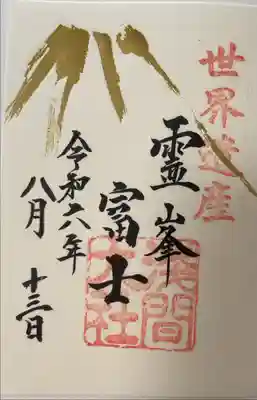 世界遺産
霊峯
富士
浅間
大社
令和六年
八月
十三日